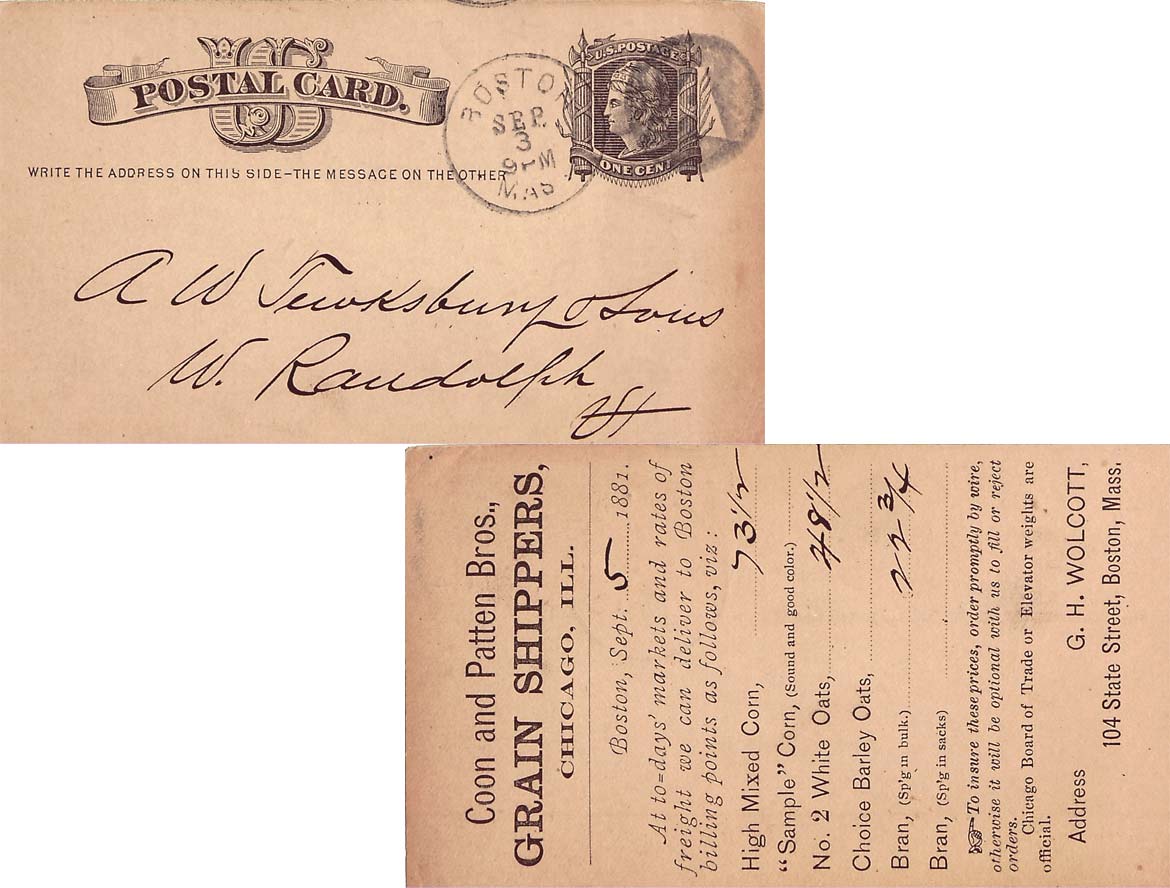 US
POSTAL CARD.
WRITE THE ADDRESS ON THIS SIDE-THE MESSAGE ON THE OTHER
BOSTON
SEP.
3
9-M
MAS
U.S. POSTAGE
ONE CENT
A W Tewksbury & Sons
W. Randolph
Vt
Coon and Patten Bros.,
GRAIN SHIPPERS,
CHICAGO, ILL.
Boston, Sept. 5 1881.
At to=days' markets and rates of
freight we can deliver to Boston
billing points as follows, viz:
High Mixed Corn, 73 1/2
"Sample" Corn, (Sound and good color.)
No. 2 White Oats, 48 1/2
Choice Barley Oats,
Bran, (Sp'g in bulk.) 22 3/4
Bran, (Sp'g in sacks)
☞ To insure these prices, order promptly by wire,
otherwise it will be optional with us to fill or reject
orders.
Chicago Board of Trade or Elevator weights are
official.
Address G. H. WOLCOTT,
104 State Street, Boston, Mass.